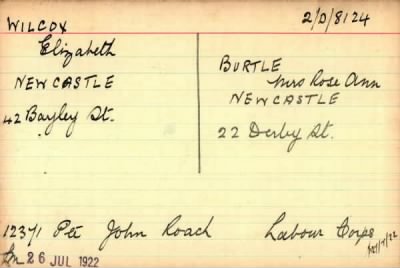 2/D/8124
WILCOX
Elizabeth
NEWCASTLE
42 Bayley St.
BURTLE
Mrs Rose Ann
NEWCASTLE
22 Derby St.
12371 Pte John Roach Labour Corps
26 JUL 1922